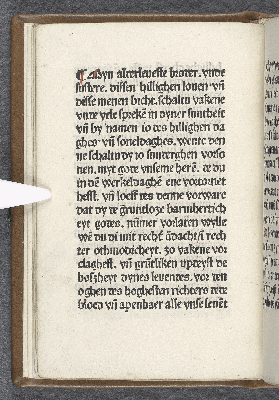 Myn alrerleueste broter. vnde
sustere. dissen hillighen louen vñ
disse menen biche. schaltu vakene
vnte vele spreken in dyner suntheit
vñ by namen to des hillighen da
ghes vñ soneldaghes. wente den
ne schaltu dy to sunterghen vorso
nen. myt gote vnseme heren. de du
in dē werkeldaghē ene vortornet
hefst. vñ loest tes denne vorware
dat dy te gruntloze barmhertich
eyt gotes. nūmer vorlaten wylle
wē du dit mit recht ādacht vñ rech
ter othmodicheyt. zo vakene vor
claghest. vñ grūtliken vpteyst de
boszheyt dynes leuentes. vor ten
oghen des hoghesten richters dede
bloed vñ apenbaer alle vnse senēt